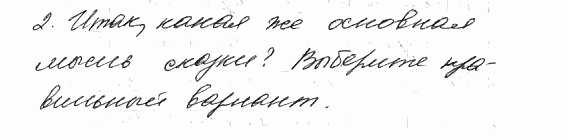 2. Итак, какая же основная
мысль сказки? Выберите пра-
вильный вариант.